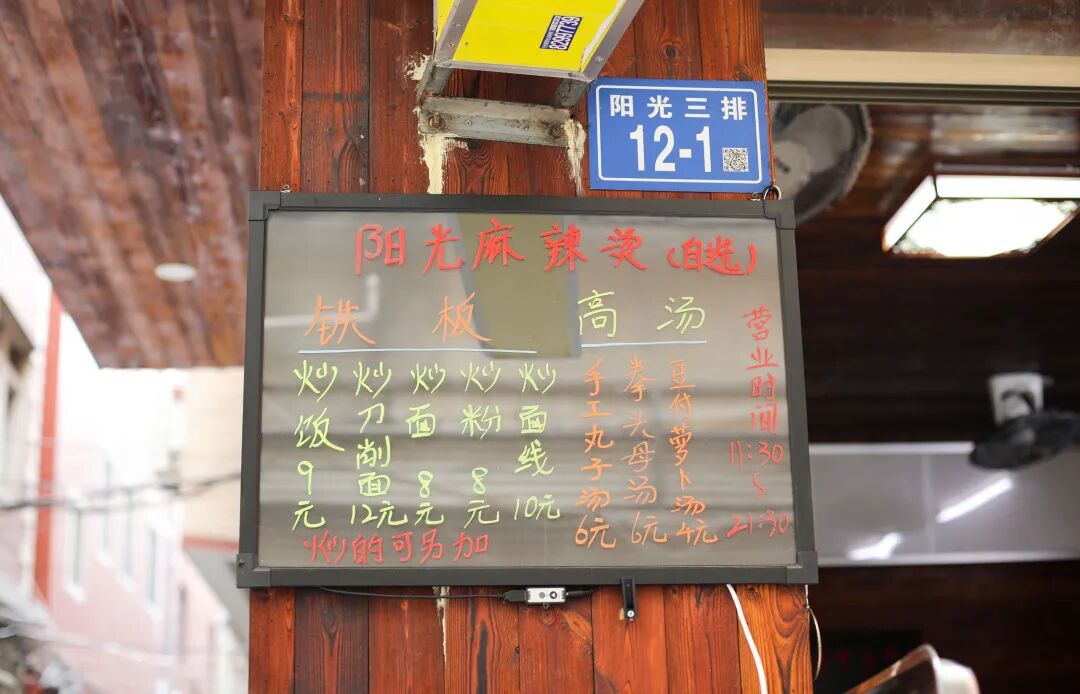 阳光三排
12-1
阳光麻辣烫(自选)
铁板
炒饭9元
炒刀削面12元
炒面8元
炒粉8元
炒面线10元
炒的可另加
高汤
手工丸子汤6元
拳头母汤6元
豆付萝卜汤4元
营业时间
11:30
~
21:30